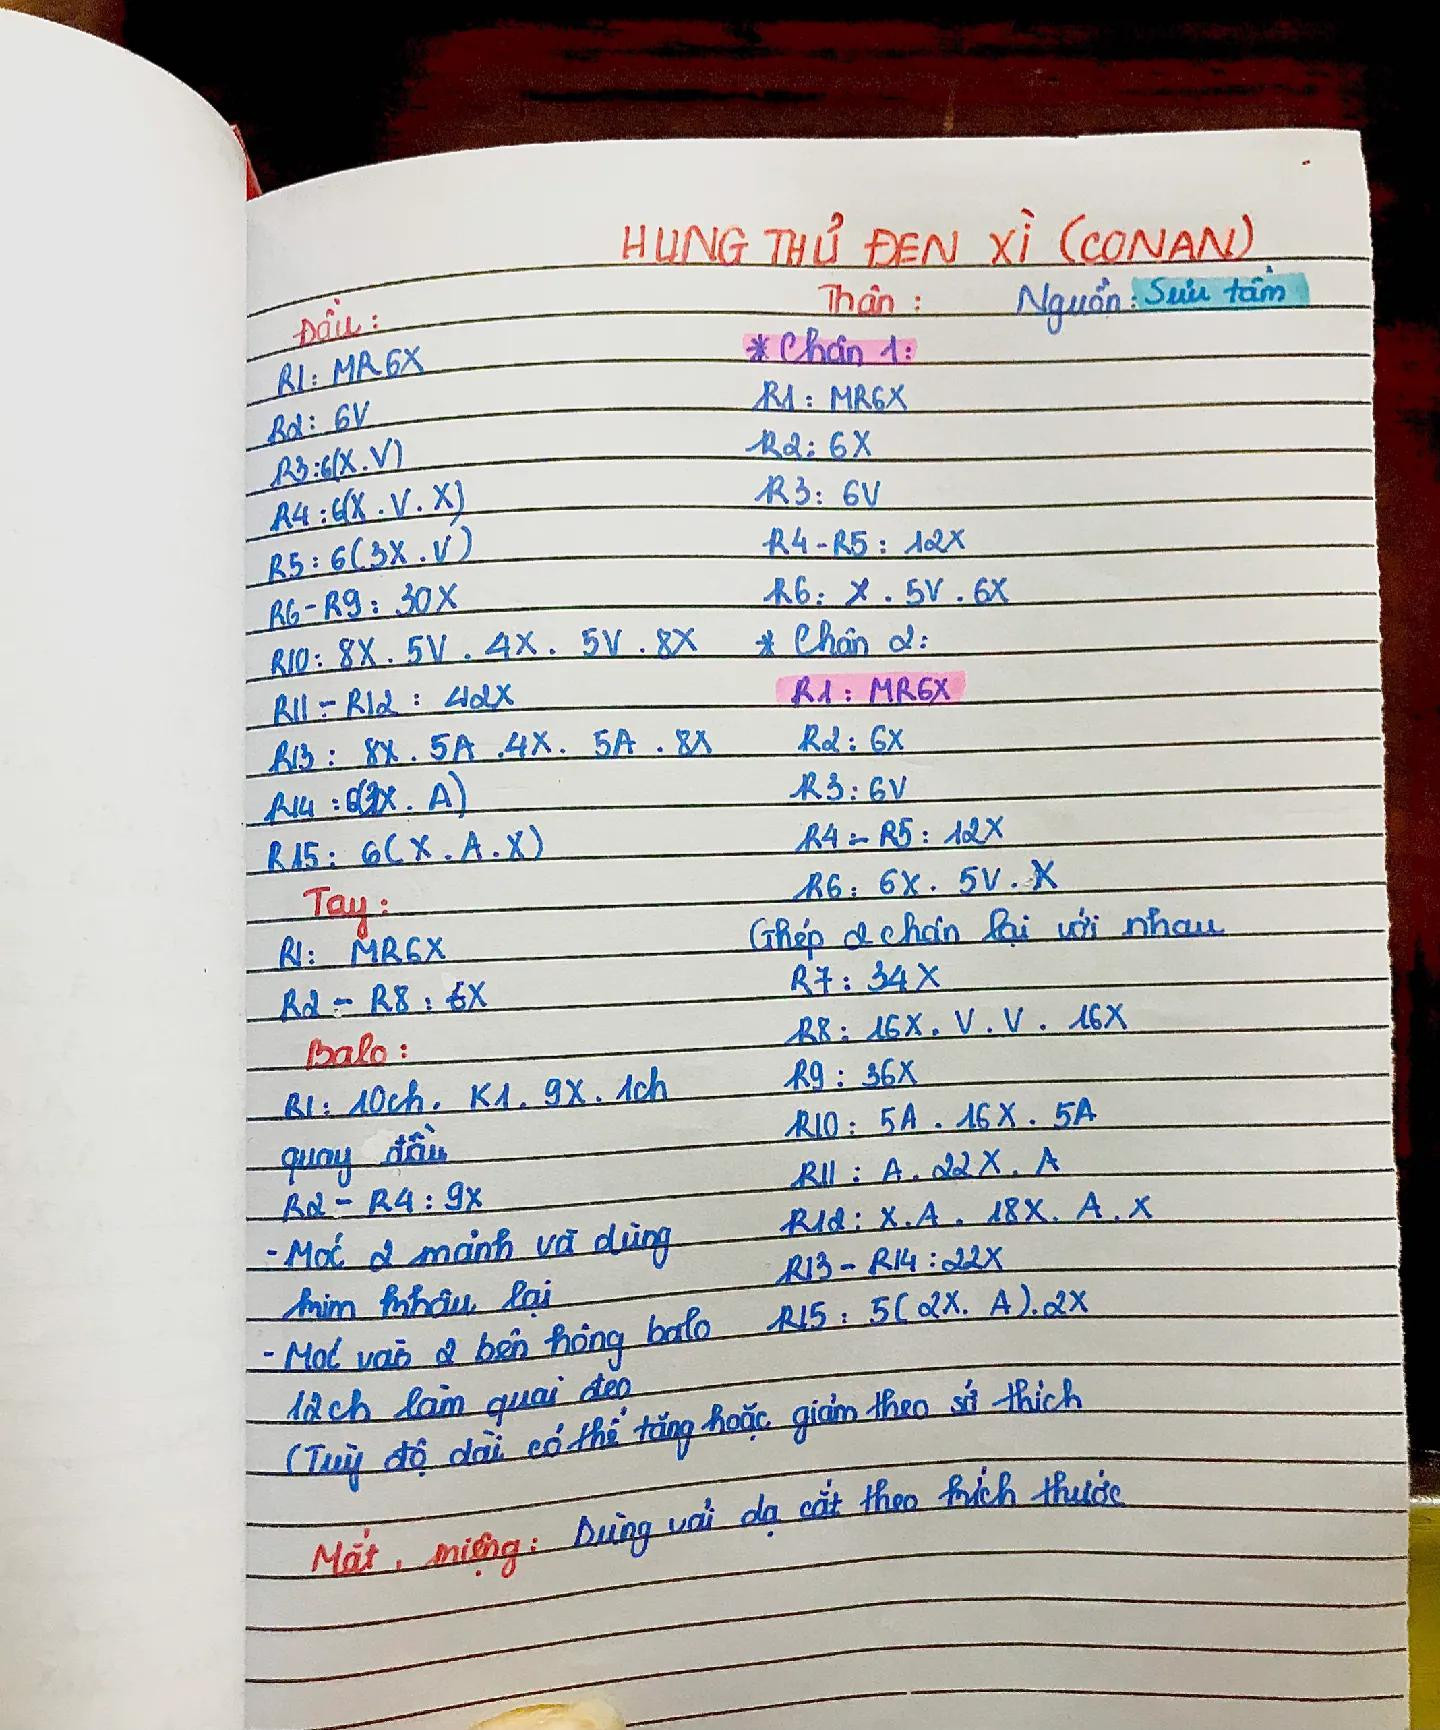 HUNG THỦ ĐEN XÌ (CONAN)
Nguồn: Sưu tầm
Đầu:
R1: MR6X
R2: 6V
R3: 6(X.V)
R4: 6(X.V.X)
R5: 6(3X.V)
R6-R9: 30X
R10: 8X. 5V. 4X. 5V. 8X
R11-R12: 42X
R13: 8X. 5A. 4X. 5A. 8X
R14: 6(2X. A)
R15: 6(X.A.X)
Tay:
R1: MR6X
R2-R8: 6X
Balo:
R1: 10ch. K1. 9X. 1ch
quay đầu
R2-R4: 9X
- Móc 2 mảnh và dùng
kim khâu lại
- Móc vào 2 bên hông balo
12ch làm quai đeo
(Tuỳ độ dài có thể tăng hoặc giảm theo sở thích
Thân:
* Chân 1:
R1: MR6X
R2: 6X
R3: 6V
R4-R5: 12X
R6: X. 5V. 6X
* Chân 2:
R1: MR6X
R2: 6X
R3: 6V
R4-R5: 12X
R6: 6X. 5V. X
Ghép 2 chân lại với nhau
R7: 34X
R8: 16X. V. V. 16X
R9: 36X
R10: 5A. 16X. 5A
R11: A. 22X. A
R12: X.A. 18X. A.X
R13-R14: 22X
R15: 5(2X. A).2X
Mắt, miệng: Dùng vải dạ cắt theo kích thước